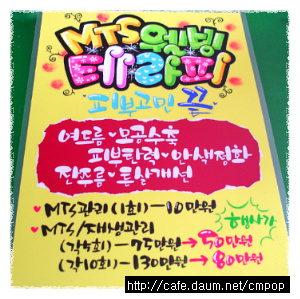 MTS 웰빙
테라피
피부고민 끝
여드름~모공수축
피부탄력~안색정화
잔주름~튼살개선
♥ MTS관리(1회)-10만원
♥ MTS/재생관리
행사가
(각5회)-75만원→50만원
(각10회)-130만원→80만원
http://cafe.daum.net/cmpop